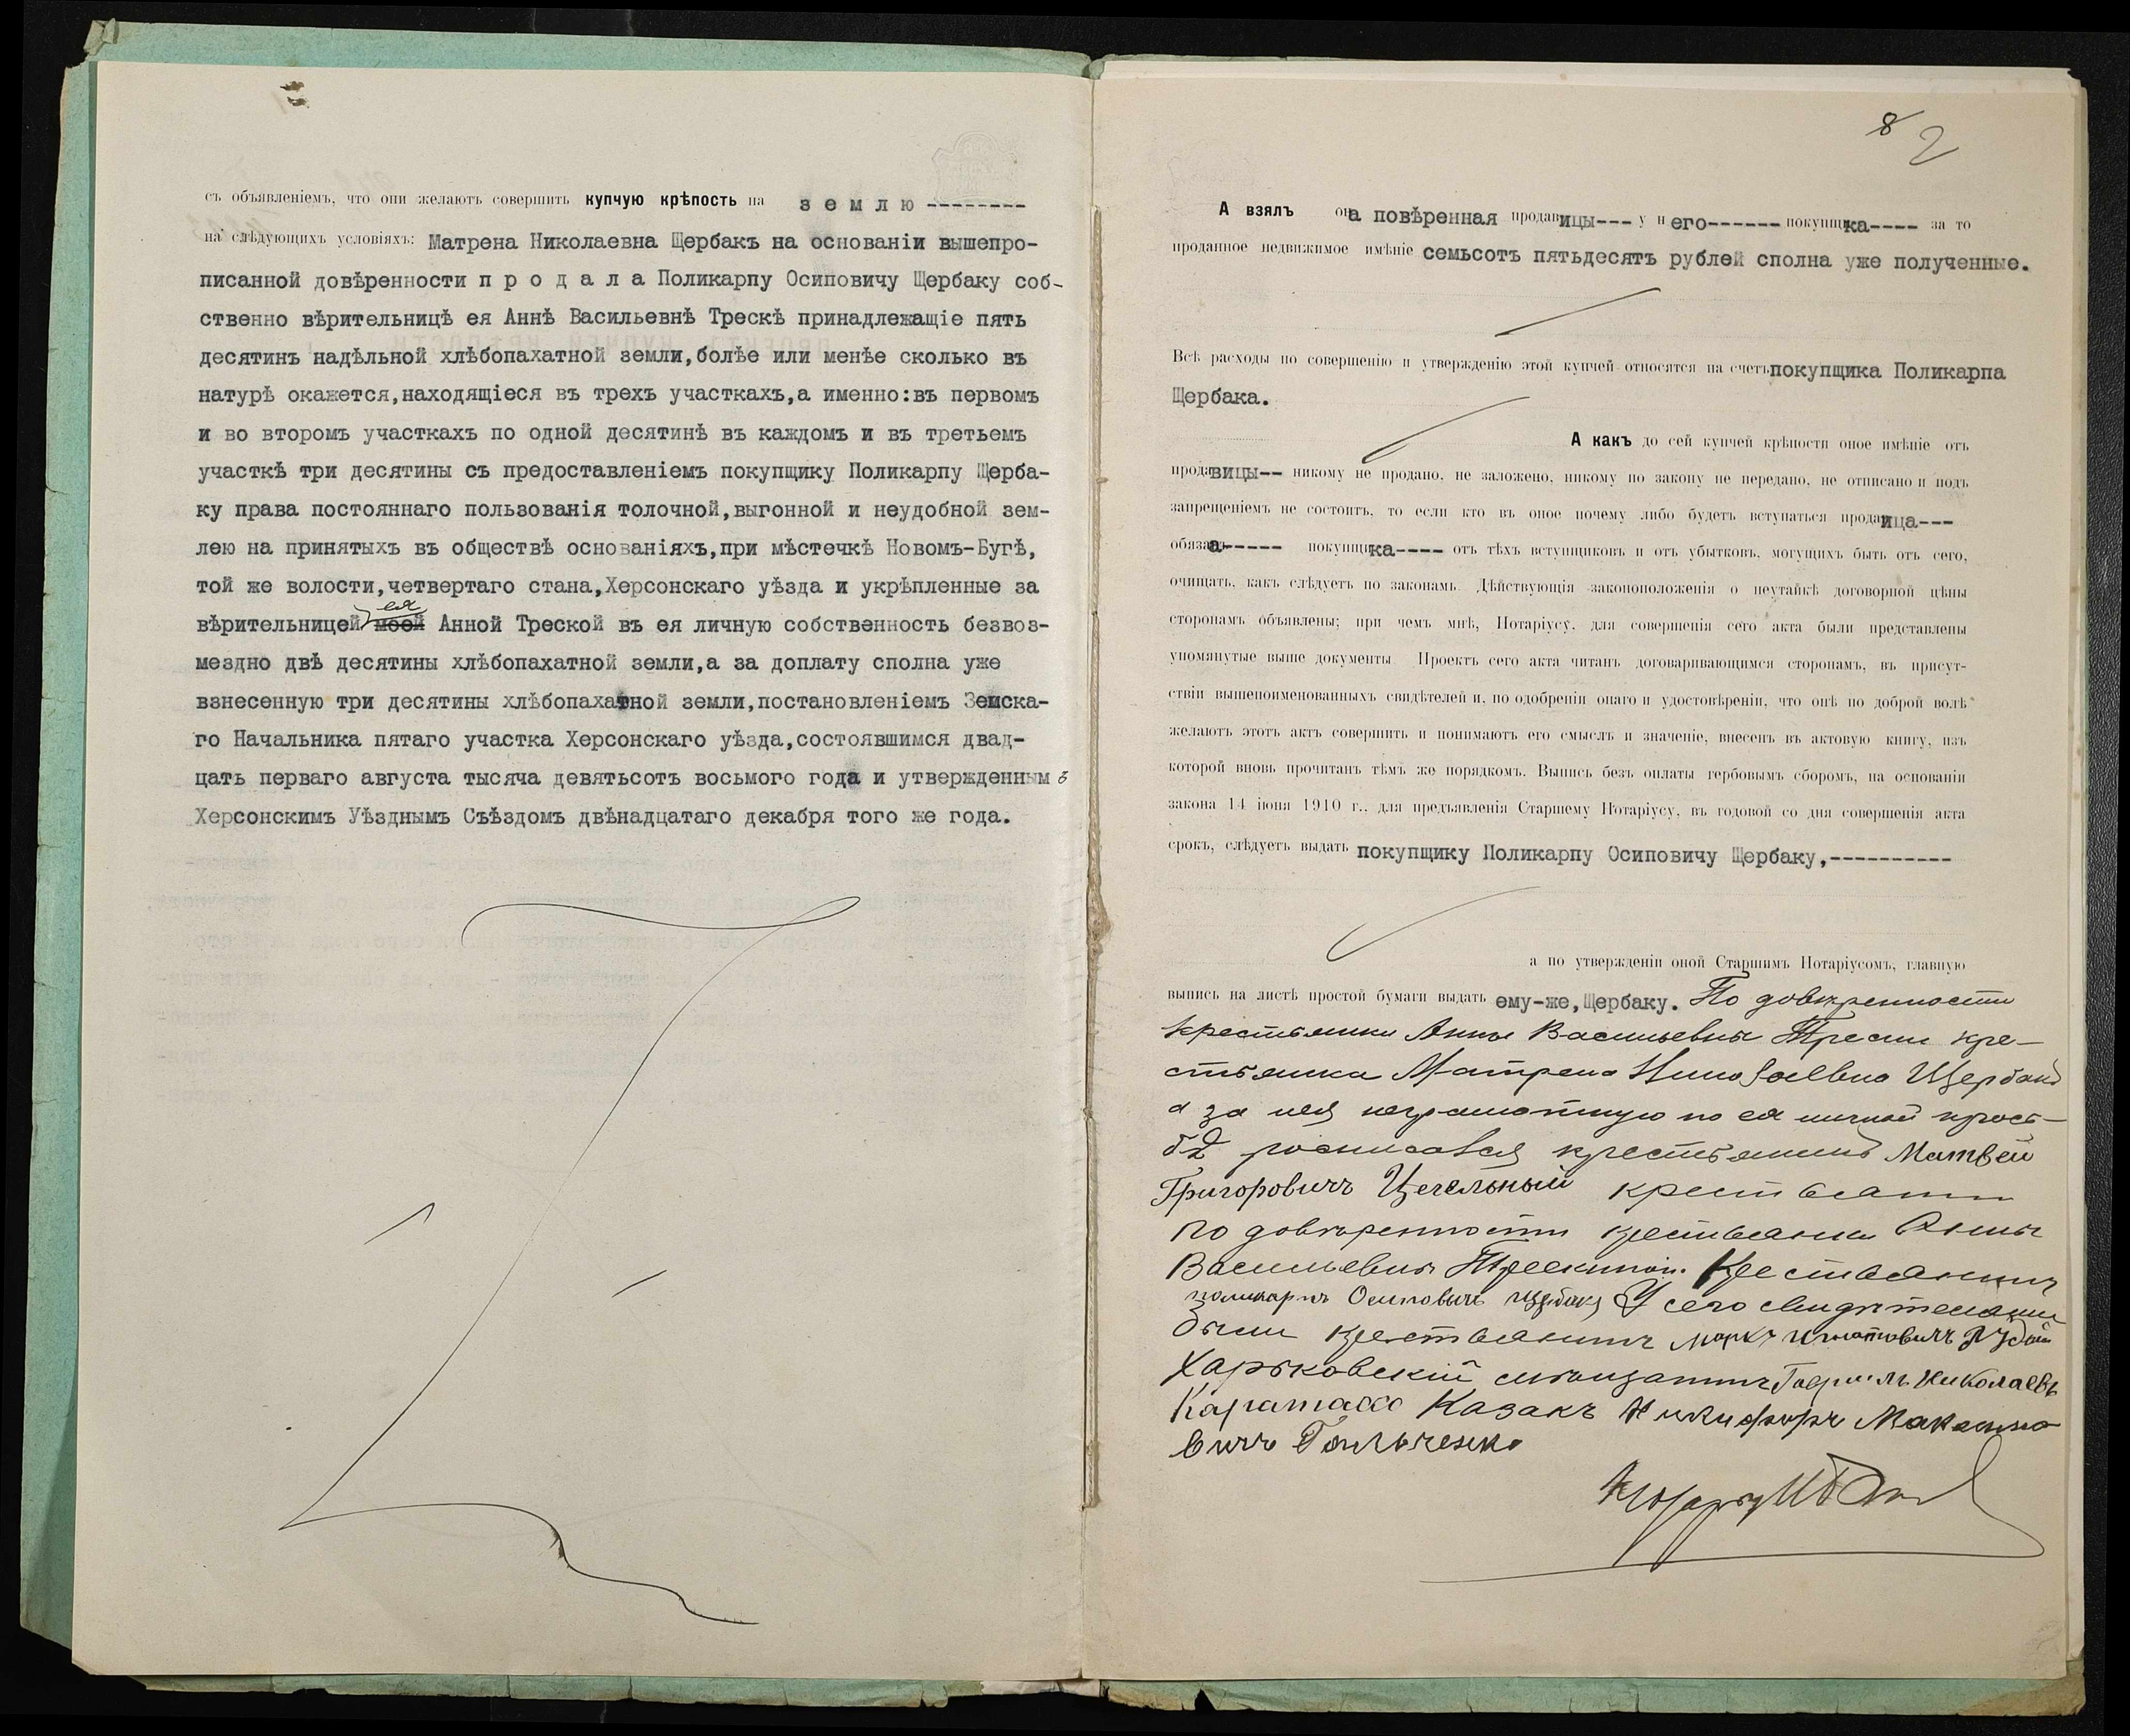 съ объявленіемъ, что они желаютъ совершить купчую крѣпость на з е м л ю --------
на слѣдующихъ условіяхъ: Матрена Николаевна Щербакъ на основаніи вышепро-
писанной довѣренности п р о д а л а Поликарпу Осиповичу Щербаку соб-
ственно вѣрительницѣ ея Аннѣ Васильевнѣ Трескѣ принадлежащіе пять
десятинъ надѣльной хлѣбопахатной земли,болѣе или менѣе сколько въ
натурѣ окажется,находящіеся въ трехъ участкахъ,а именно:въ первомъ
и во второмъ участкахъ по одной десятинѣ въ каждомъ и въ третьемъ
участкѣ три десятины съ предоставленіемъ покупщику Поликарпу Щерба-
ку права постояннаго пользованія толочной,выгонной и неудобной зем-
лею на принятыхъ въ обществѣ основаніяхъ,при мѣстечкѣ Новомъ-Бугѣ,
той же волости,четвертаго стана,Херсонскаго уѣзда и укрѣпленные за
ея
вѣрительницей моей Анной Треской въ ея личную собственность безвоз-
мездно двѣ десятины хлѣбопахатной земли,а за доплату сполна уже
взнесенную три десятины хлѣбопахатной земли,постановленіемъ Земска-
го Начальника пятаго участка Херсонскаго уѣзда,состоявшимся двад-
цать перваго августа тысяча девятьсотъ восьмого года и утвержденнымъ
Херсонскимъ Уѣзднымъ Съѣздомъ двѣнадцатаго декабря того же года.
8 2
А взялъ она повѣренная продавицы--- у него------ покупщика---- за то
проданное недвижимое имѣніе семьсотъ пятьдесятъ рублей сполна уже полученные.
Всѣ расходы по совершенію и утвержденію этой купчей относятся на счетъ покупщика Поликарпа
Щербака.
А какъ до сей купчей крѣпости оное имѣніе отъ
продавицы-- никому не продано, не заложено, никому по закону не передано, не отписано и подъ
запрещеніемъ не состоитъ, то если кто въ оное почему либо будетъ вступаться продавица---
обязана----- покупщика---- отъ тѣхъ вступщиковъ и отъ убытковъ, могущихъ быть отъ сего,
очищать, какъ слѣдуетъ по законамъ. Дѣйствующія законоположенія о неутайкѣ договорной цѣны
сторонамъ объявлены; при чемъ мнѣ, Нотаріусу, для совершенія сего акта были представлены
упомянутые выше документы. Проектъ сего акта читанъ договаривающимся сторонамъ, въ присут-
ствіи вышепоименованныхъ свидѣтелей и, по одобреніи онаго и удостовѣреніи, что онѣ по доброй волѣ
желаютъ этотъ актъ совершить и понимаютъ его смыслъ и значеніе, внесенъ въ актовую книгу, изъ
которой вновь прочитанъ тѣмъ же порядкомъ. Выпись безъ оплаты гербовымъ сборомъ, на основаніи
закона 14 іюня 1910 г., для предъявленія Старшему Нотаріусу, въ годовой со дня совершенія акта
срокъ, слѣдуетъ выдать покупщику Поликарпу Осиповичу Щербаку,----------
а по утвержденіи оной Старшимъ Нотаріусомъ, главную
выпись на листѣ простой бумаги выдать ему-же,Щербаку. По довѣренности
крестьянки Анны Васильевны Трески кре-
стьянка Матрена Николаевна Щербакъ
а за нея неграмотную по ея личной прось-
бѣ росписался крестьянинъ Матвей
Григоровичъ Цегельный крестьянин
по довѣренности крестьянки Анны
Васильевны Крестьянинъ
поликарпъ Осиповичъ Щербакъ У сего свидѣтелями
были крестьянинъ Маркъ Игнатовичъ
Харьковскій мѣщанинъ Гавріилъ Николаевъ
Казакъ Никифоръ Максимо
вичъ
Нотаріусъ